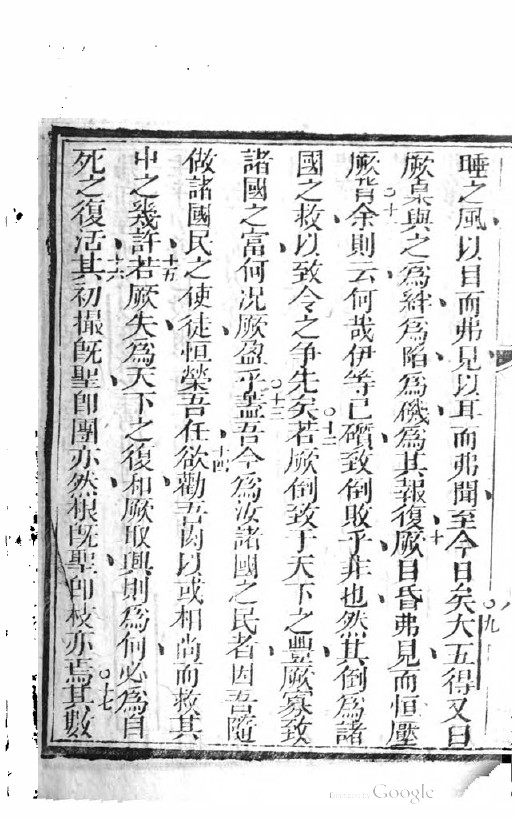 睡之風以目而弗見以耳而弗聞至今日矣大五得又曰
厥臬與之為絆為陷為磯為其報復厥目昏弗見而恒壓
厥背余則云何哉伊等已礩致倒敗乎非也然其倒為諸
國之救以致令之争先矣若厥倒致于天下之豐厥寡致
諸國之富何況厥盈乎葢吾今為汝諸國之民者因吾隨
做諸國民之使徒恒榮吾任欲勸吾肉以或相尚而救其
中之幾許若厥失為天下之復和厥取興則為何必為自
死之復活其初撮既聖卽團亦然根既聖卽枝亦焉其數
九
十
十一
十二
十三
十四
十五
十六
十七
Digitized by Google